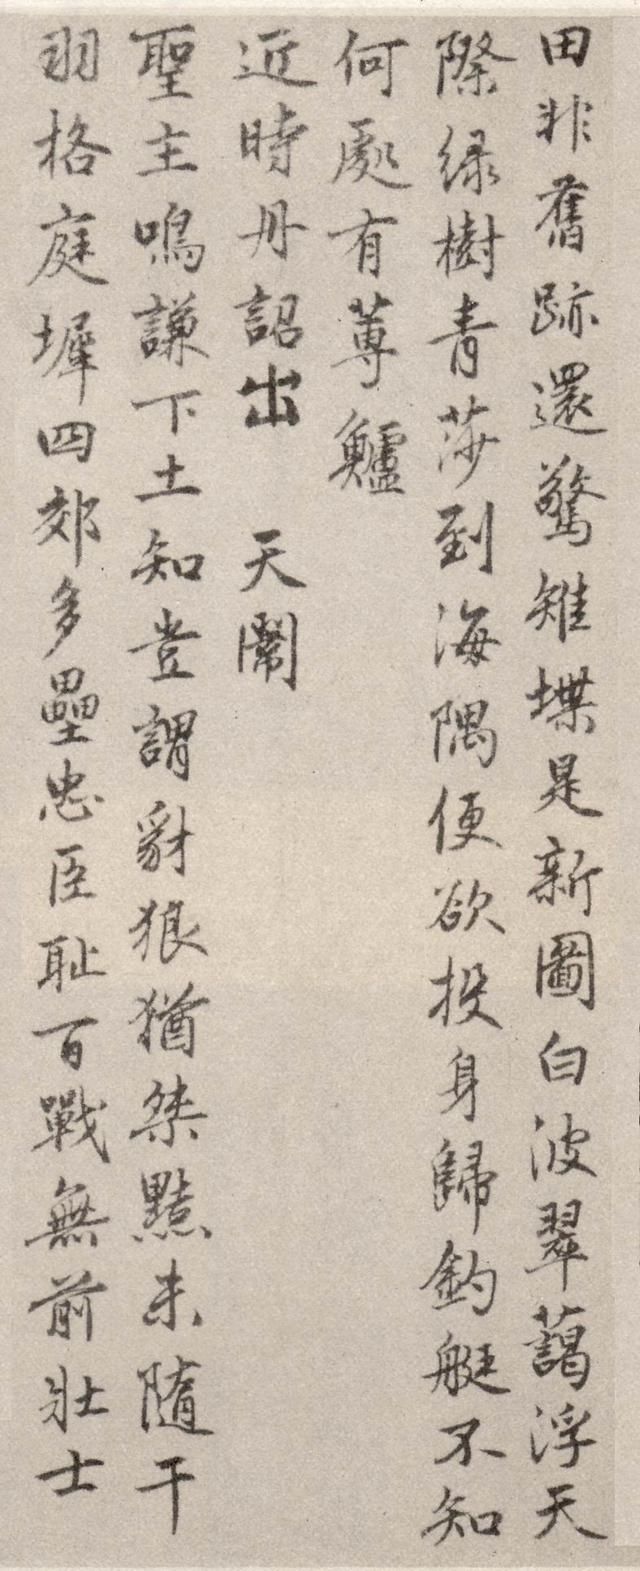 田非舊跡還驚雉堞是新圖白波翠藹浮天
際綠樹青莎到海隅便欲投身歸釣艇不知
何處有蓴鱸
近時丹詔出 天閽
聖主鳴謙下土知豈謂豺狼猶桀黠未隨干
羽格庭墀四郊多壘忠臣恥百戰無前壯士